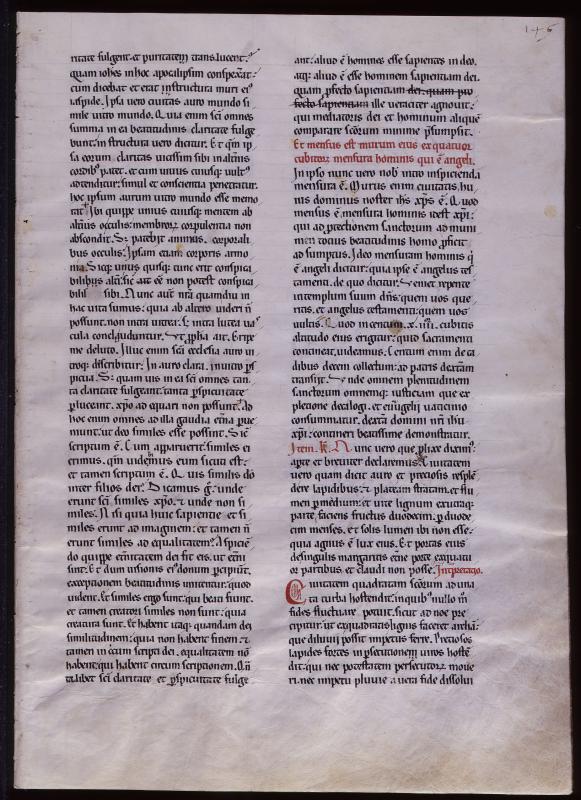 146
ritate fulgent. et puritatem translucent.
quam iohes in hoc apocalipsim conspexat.
cum dicebat et erat instructura muri ei⁹
iaspide. Ipsa vero civitas auro mundo si
mile vitro mundo. Quia enim sc̄i omnes
summa in ea beatitudinis claritate fulge
bunt. instructura vero dicitur. Et qm̄ ip
sa eorum claritas vicissim sibi in alt̄ius
cordib⁹ patet. et cum unius cuiusq; vult⁹
adtenditur. simul et conscientia penetratur.
hoc ipsum aurum vitro mundo esse memo
rat᷑. Ibi quippe unius cuiusq; mentem ab
alt̄ius oculis. membroꝝ corpulentia non
abscondit. S; patebit animus. corporali
bus oculis. Ipsam etiam corporis armo
nia. Sicq; unus quisq; tunc erit conspica
bilis alt̄i. sic aut ēē non potest conspica
bili sibi. Nunc aut nr̄a quamdiu in
hac vita sumus. quia ab altero videri n̄
possunt. non intra vitrea. s; intra lutea va
cula concluduntur. Vt ꝓpha ait. Eripe
me de luto. Illuc enim sc̄i ecclesia auro in
troq; discribitur. In auro clara. in vitro ꝑs
picua. S; quam vis in ea sc̄i omnes tan
ta claritate fulgeant. tanta ꝑspicuitate
ꝑluceant. xp̄o ad equari non possunt. Ad
hoc enim omnes ad illa gaudia et̄na pue
niunt. ut deo similes esse possint. Sic
scriptum ē. Cum apparuerit. similes ei
erimus. qm̄ videbimus eum sicuti est.
et tamen scriptum ē. Quis similis do
inter filios dei. Dicamus g̊. unde
erunt sc̄i similes xp̄o. et unde non si
miles. Nisi quia huic sapientie et si
miles erunt ad imaginem. et tamen n̄
erunt similes ad equalitatem. Aspicien
do quippe et̄nitatem dei fit eis. ut et̄ni
sint. Et dum visionis ei⁹ donum ꝑcipiunt.
exceptionem beatitudinis imitentur. quod
vident. Et similes ergo sunt. qui beati fiunt.
et tamen creatori similes non sunt. quia
creatura sunt. Et habent itaq; quandam dei
similitudinem. quia non habent finem. et
tamen in circum scripti dei. equalitatem non
habent. qui habent circum scriptionem. Qn̄
talibet sc̄i claritate et ꝑspicuitate fulge
ant. aliud ē homines esse sapientes in deo.
atq; aliud ē esse hominem sapientiam dei.
quam ꝓfecto sapientiam dei. quam pro
fecto sapientiam ille veraciter agnovit.
qui mediatoris dei et hominum aliquē
comparare sc̄orum minime ꝓsumpsit.
Et mensus est murum eius ex quatuor
cubitorum. mensura hominis qui ē angeli.
In ipso nunc vero nob̄ intro inspicienda
mensura ē. Murus enim civitatis. hu
ius dominus noster ih̄s xp̄s ē. Quod
mensus ē mensura hominis idest xp̄i.
qui ad ꝓtectionem sanctorum ad muni
men totius beatitudinis homo ꝓficit
ad sumptus. Ideo mensuram hominis q̄
ē angeli dicitur. quia ipse ē angelus tes
tamenti. de quo dicitur. Et veniet repente
in templum suum dn̄s. quem vos que
ritis. et angelus testamenti. quem vos
vultis. Quod in centum .x. iiii. cubitis
altitudo eius erigitur. quid sacramenti
contineat. videamus. Centum enim de ca
dibus decem collectum. ad patris dextam
transiit. Vnde omnem plenitudinem
sanctorum omnemq; iustitiam que ex
pletione decalogi. et evu̅gelii vaticinio
consummatur. dextā domini nr̄i ih̄u
xp̄i. contineri beatissime demonstratur.
Item. Nunc vero que ꝓlixe dixim⁹
apte et breviter declaremus. Civitatem
vero quam dicit auro et preciosis resplē
dere lapidibus. et plateam stratam. et flu
men ꝑ medium. et vite lignum ex utraq;
parte. faciens fructus duodecim. ꝑ duode
cim menses. et solis lumen ibi non esse.
quia agnus ē lux eius. Et portas eius
de singulis margaritis et̄ne porte ex quatu
or partibus. et claudi non posse. Interpretatio.
Civitatem quadratam sc̄orum aduna
ta turba hostendit. in quib⁹ nullo m̊
fides fluctuare potuit. sicut ad noe pre
cipitur. ut ex quadratis lignis faceret archā.
que diluvii possit impetus ferre. Preciosos
lapides fortes in ꝑsecutionem viros hostē
dit. qui nec potestatem persecutorum move
ri. nec impetu pluvie a vera fide dissolvi